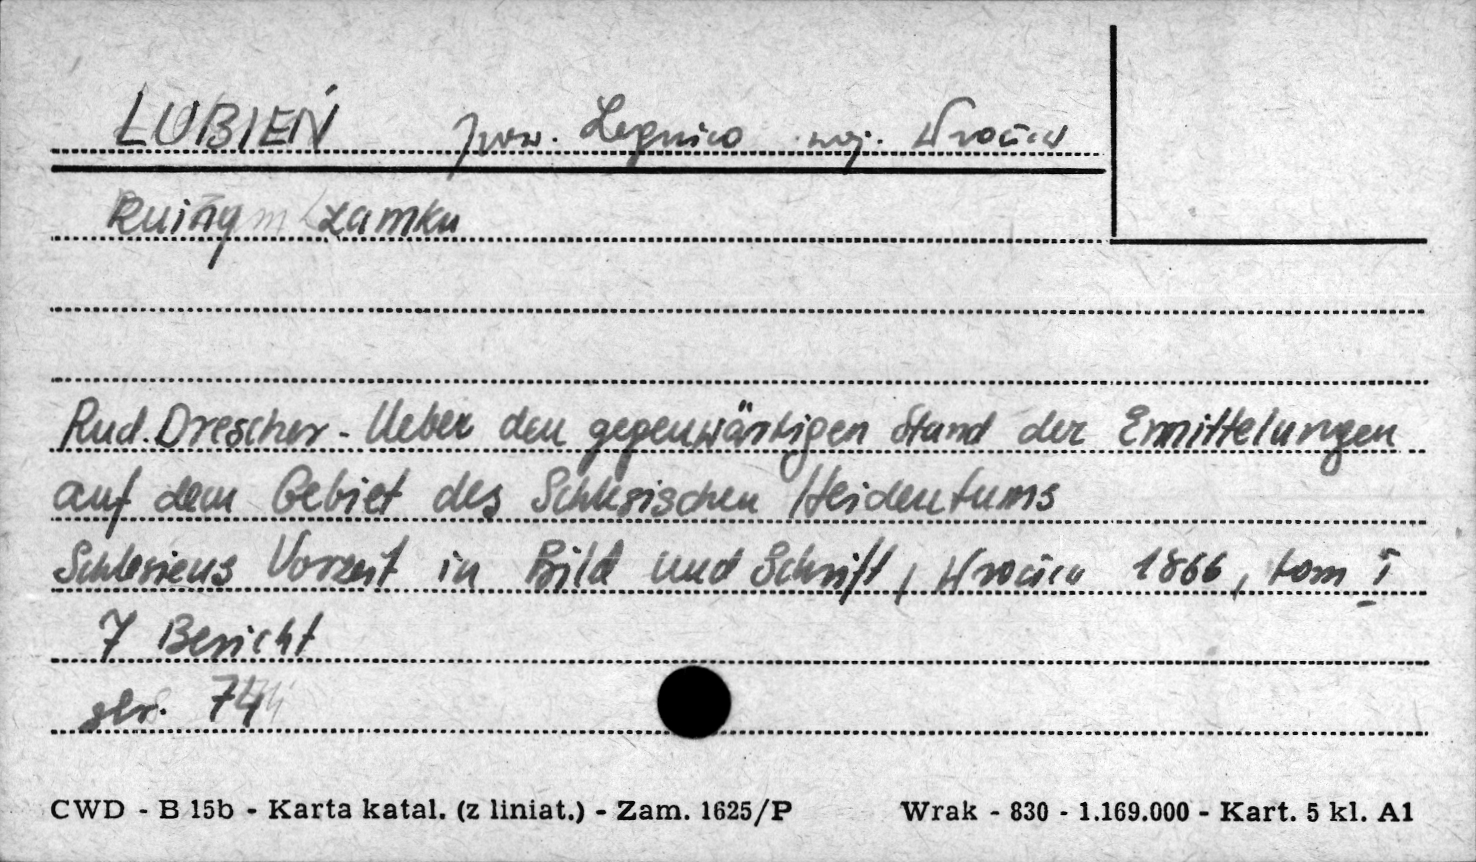 LUBIEŃ pow. Legnica woj. Wrocław
Ruiny zamku
Rud. Drescher - Ueber den gegenwärtigen Stand der Ermittelungen
auf dem Gebiet des Schlesischen Heidentums
Schlesiens Vorzeit in Bild und Schrift, Wrocław 1866, tom I
7 Bericht
str. 74
CWD - B 15b - Karta katal. (z liniat.) - Zam. 1625/P Wrak - 830 - 1.169.000 - Kart. 5 kl. A1